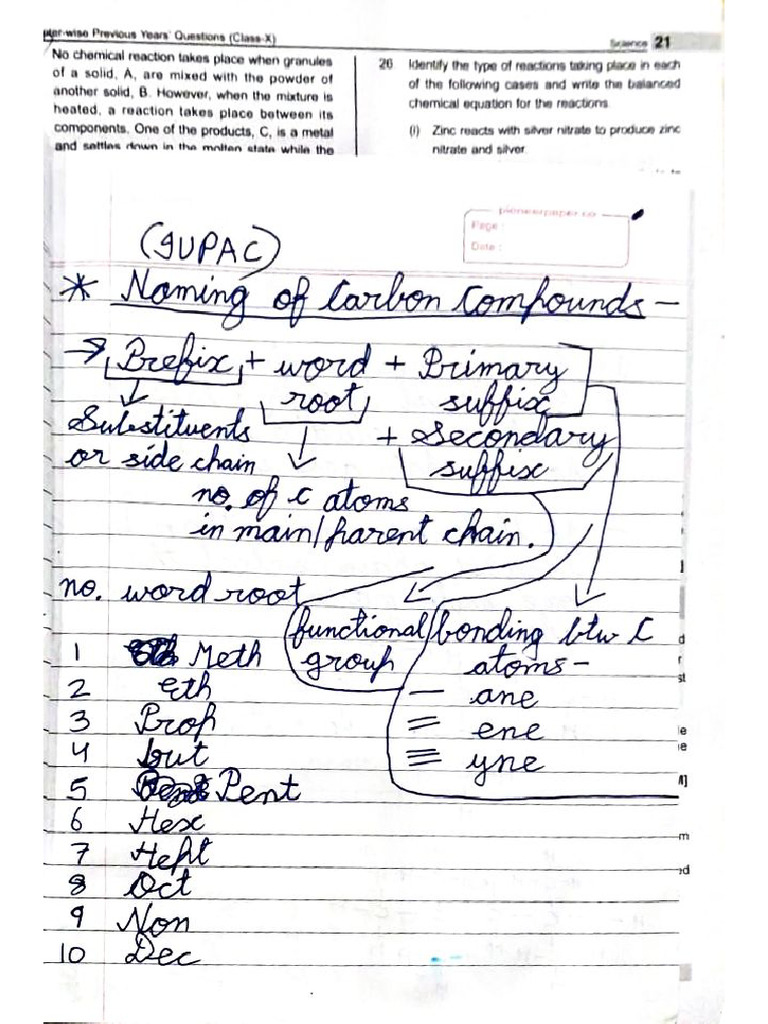 pter-wise Previous Years' Questions (Class-X)
Science 21
No chemical reaction takes place when granules
of a solid, A, are mixed with the powder of
another solid, B. However, when the mixture is
heated, a reaction takes place between its
components. One of the products, C, is a metal
and settles down in the molten state while the
26 Identify the type of reactions taking place in each
of the following cases and write the balanced
chemical equation for the reactions.
(i) Zinc reacts with silver nitrate to produce zinc
nitrate and silver.
pioneerpaper.co
Page :
Date :
(IUPAC)
* Naming of Carbon Compounds —
→ Prefix + word + Primary
root suffix
Substituents + Secondary
or side chain suffix
no. of C atoms
in main/parent chain.
no. word root
functional bonding btw C
group atoms -
1 Meth
2 Eth — ane
3 Prop = ene
4 but ≡ yne
5 Pent
6 Hex
7 Hept
8 Oct
9 Non
10 Dec